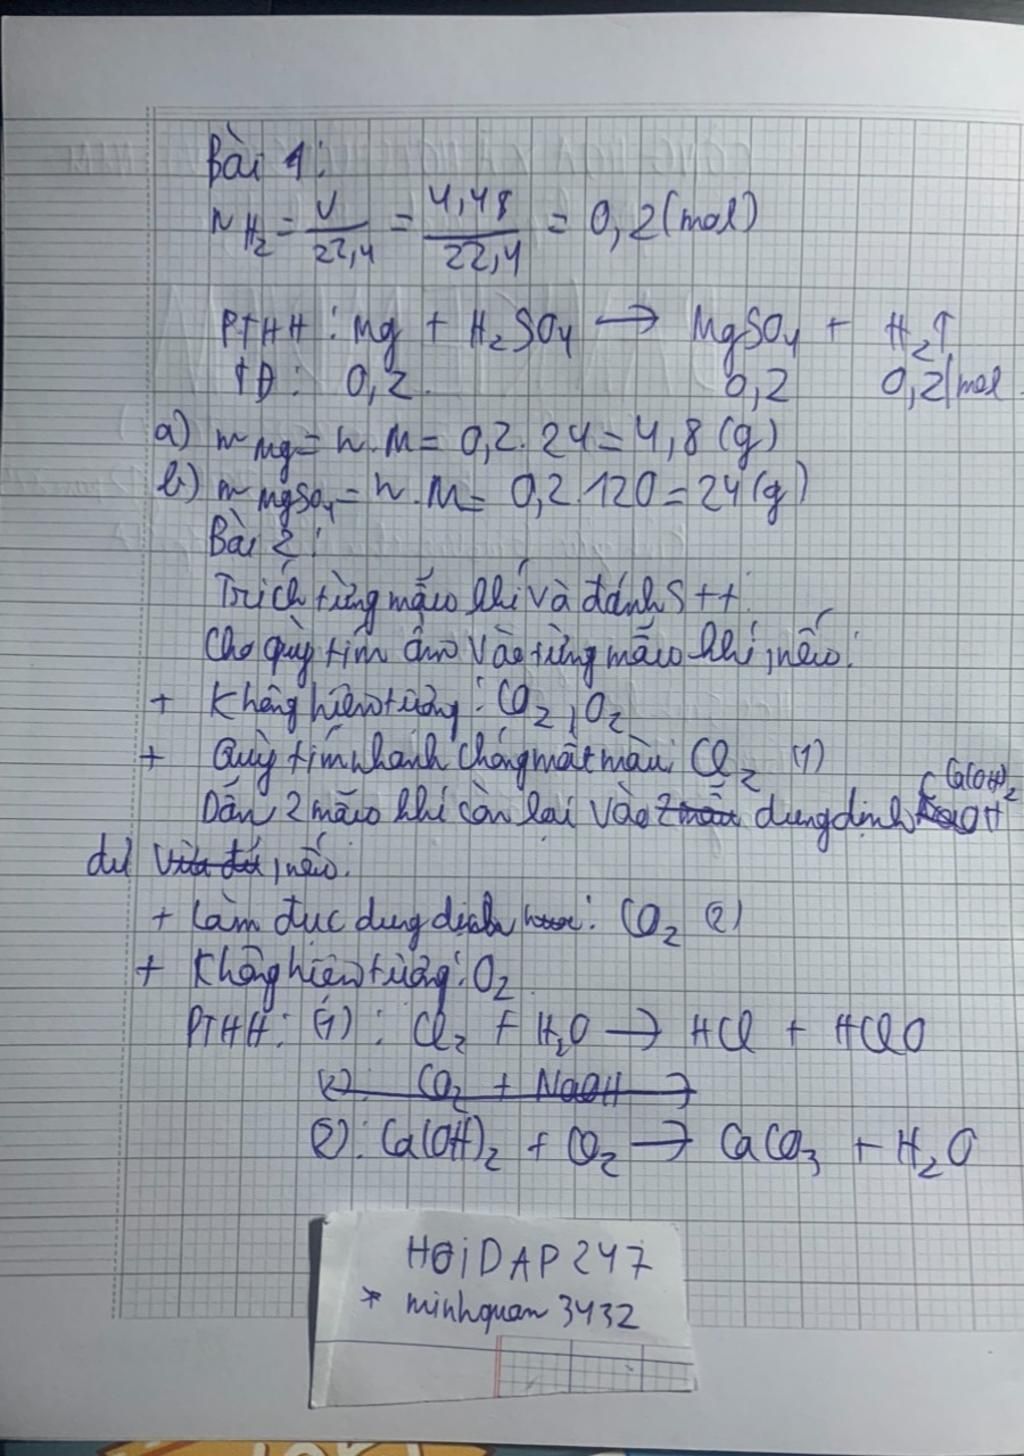 Bài 1:
nH₂ = V/22,4 = 4,48/22,4 = 0,2 (mol)
PTHH: Mg + H₂SO₄ → MgSO₄ + H₂↑
TĐ: 0,2 0,2 0,2 (mol
a) mMg = n.M = 0,2.24 = 4,8 (g)
b) mMgSO₄ = n.M = 0,2.120 = 24 (g)
Bài 2:
Trích từng mẫu khí và đánh stt.
Cho quỳ tím ẩm vào từng mẫu khí, nếu:
+ Không hiện tượng: CO₂, O₂
+ Quỳ tím nhanh chóng mất màu: Cl₂ (1)
Dẫn 2 mẫu khí còn lại vào dung dịch Ca(OH)₂
dư, nếu:
+ Làm đục dung dịch: CO₂ (2)
+ Không hiện tượng: O₂
PTHH: (1): Cl₂ + H₂O → HCl + HClO
(2): CO₂ + NaOH →
(2): Ca(OH)₂ + CO₂ → CaCO₃ + H₂O
HOiDAP247
* minhquan3432